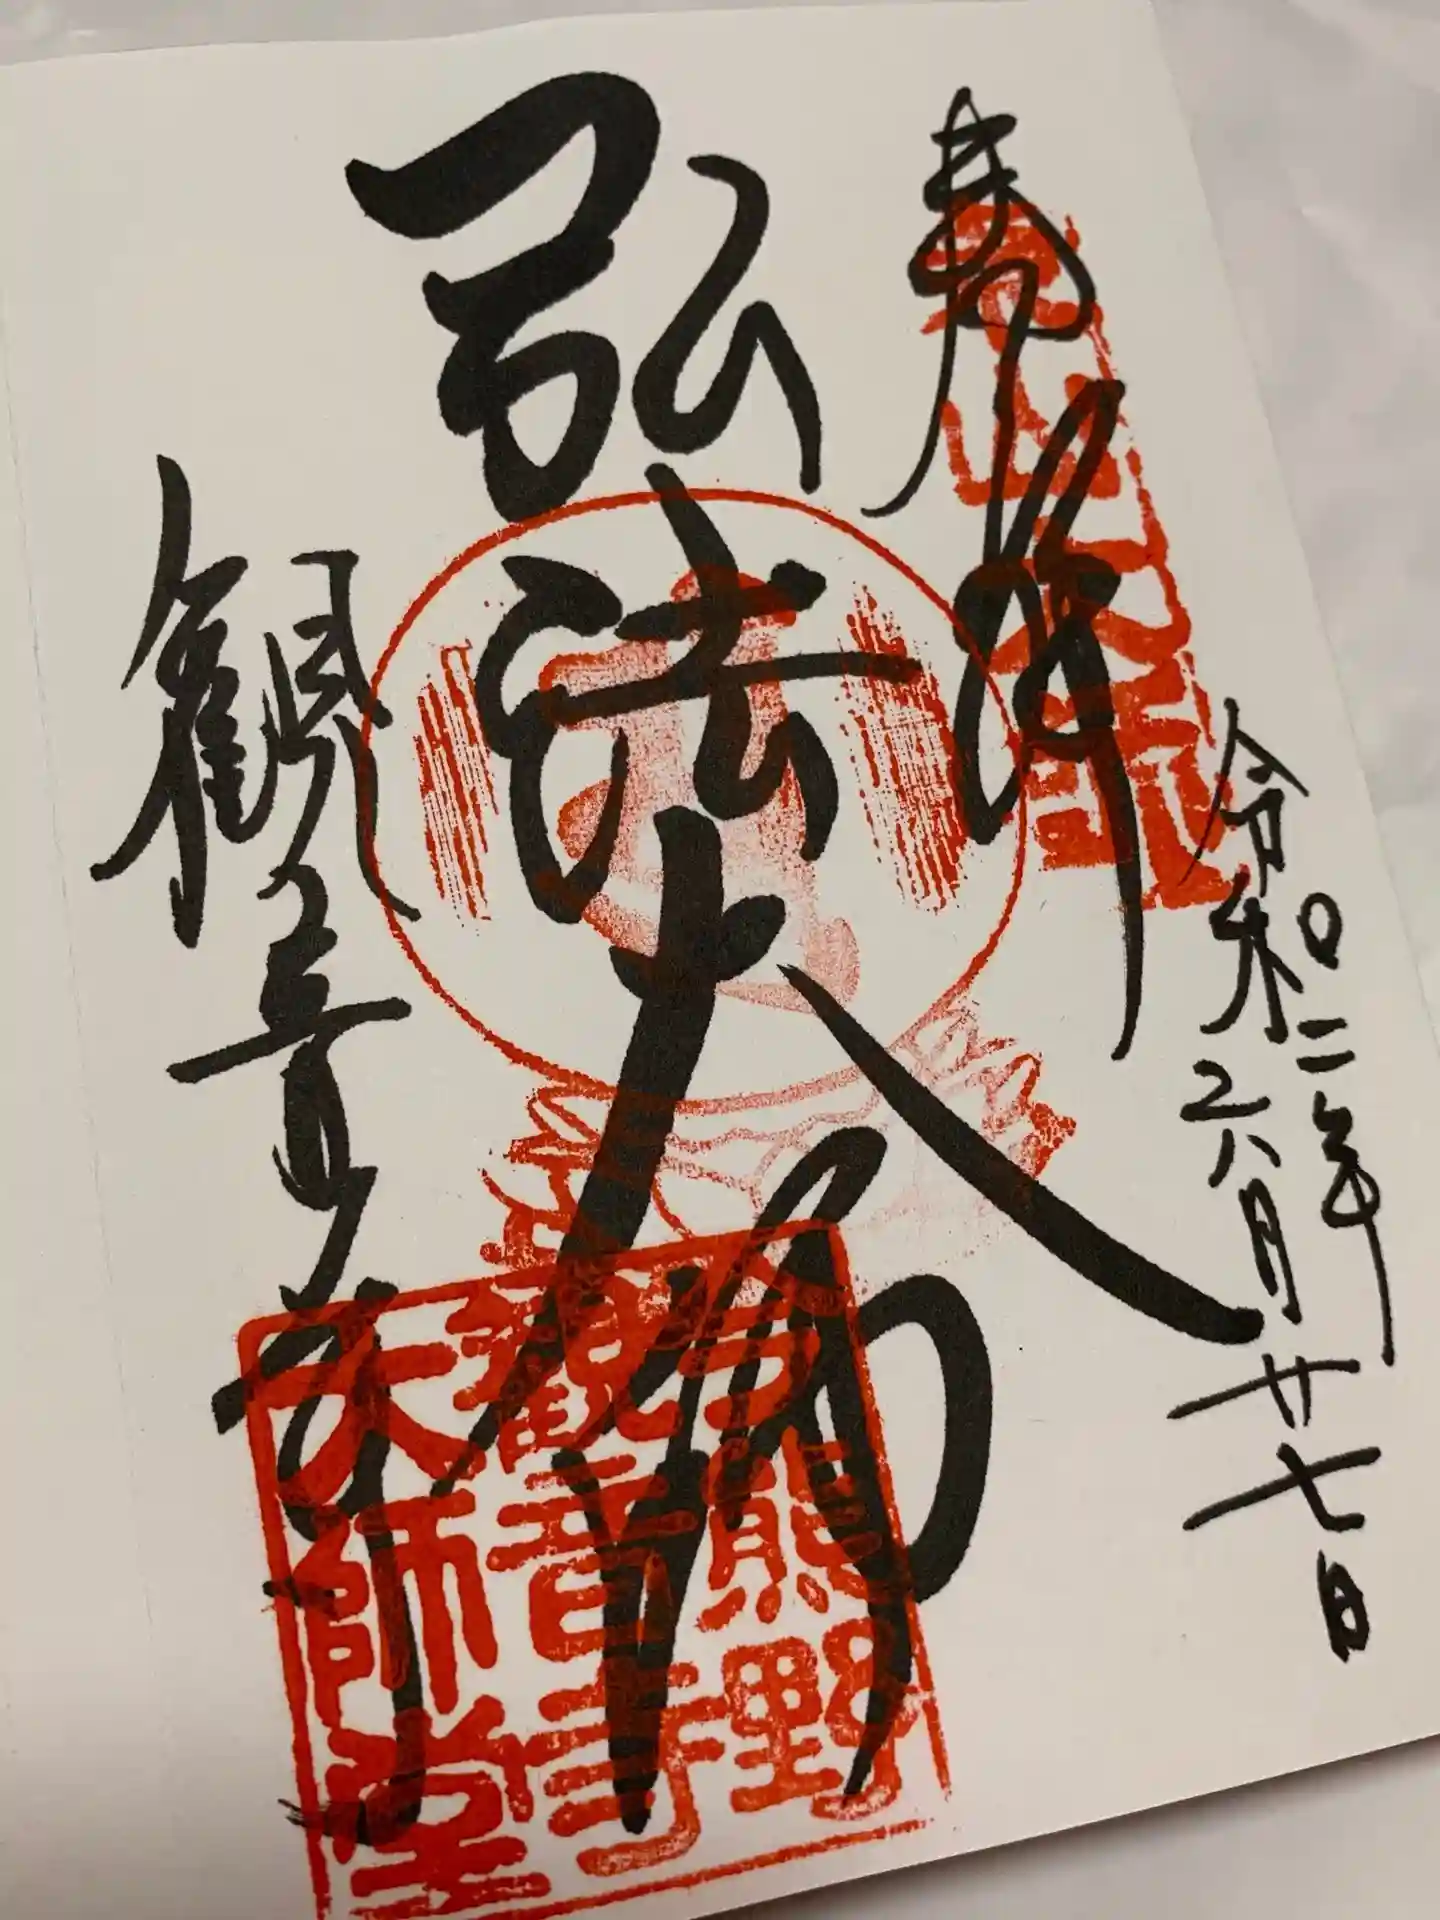 奉拝
令和二年
六月廿七日
弘法大師
觀音寺
今熊野
觀音寺
大師堂